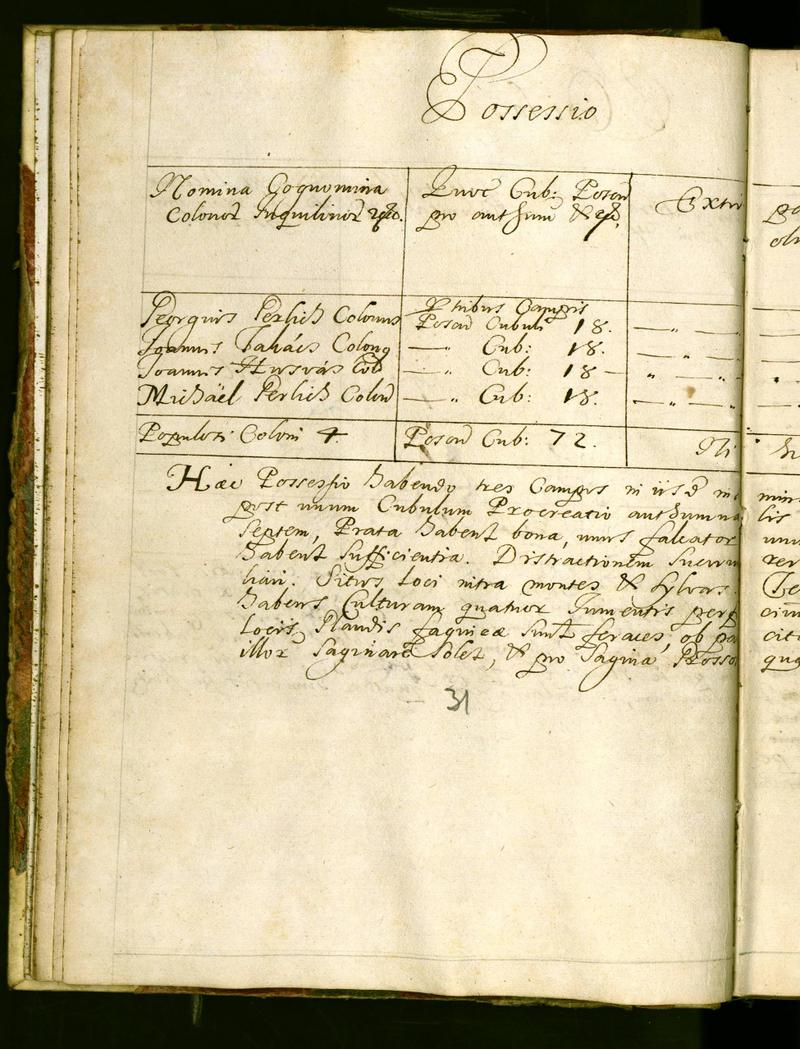 Possessio
Nomina Cognomina
Colonor Inquilinor
Quot Cub: Poson
pro authum
Extri
Georgius Perlich Colonus
Tribus Campis
Poson Cubuli 18.
Joannis Takács Colonus
— " Cub: 18.
Joannis Huszás Col
— " Cub: 18 —
Michäel Perlich Colon
— " Cub: 18.
Populosi Coloni 4
Poson Cub: 72.
Hæc Possessio habendo tres Campos in iisd
post unum Cubulum Procreatio authumna
septem, Prata habent bona, unus falcator
habent sufficientia. Distractionem suorum
liari. Situs loci intra montes & sylvas.
habens Culturam quatuor Jumentis perf
Locis, Glandis fagineæ sunt feraces, ob
illor saginare solet, & pro Sagina Posso
31